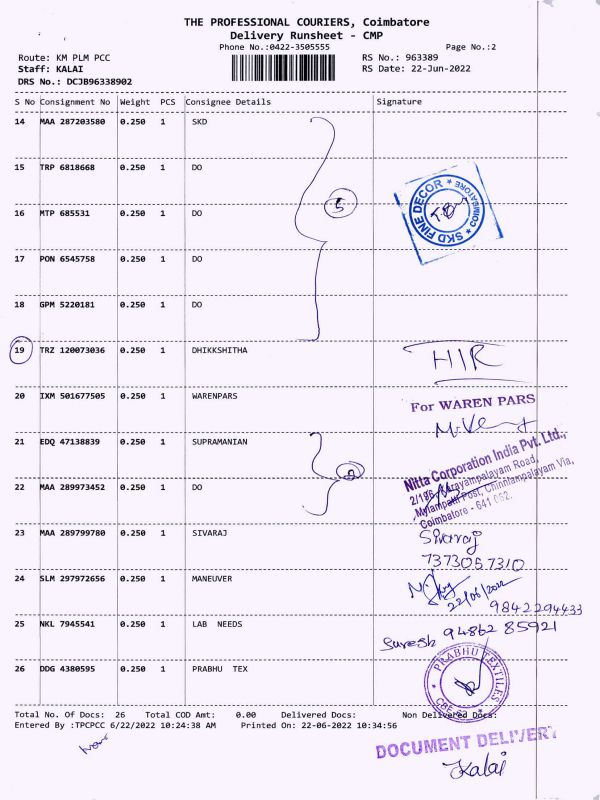 THE PROFESSIONAL COURIERS, Coimbatore
Delivery Runsheet - CMP
Phone No.:0422-3505555 Page No.:2
Route: KM PLM PCC RS No.: 963389
Staff: KALAI RS Date: 22-Jun-2022
DRS No.: DCJB96338902
S No Consignment No Weight PCS Consignee Details Signature
14 MAA 287203580 0.250 1 SKD
15 TRP 6818668 0.250 1 DO
SKD FINE DECOR * COIMBATORE *
5
16 MTP 685531 0.250 1 DO
17 PON 6545758 0.250 1 DO
18 GPM 5220181 0.250 1 DO
19 TRZ 120073036 0.250 1 DHIKKSHITHA
HIR
20 IXM 501677505 0.250 1 WARENPARS
For WAREN PARS
21 EDQ 47138839 0.250 1 SUPRAMANIAN
Nitta Corporation India Pvt. Ltd.,
2/196, Narayampalayam Road,
Mylampatti Post, Chinniampalayam Via,
Coimbatore - 641 062.
22 MAA 289973452 0.250 1 DO
23 MAA 289799780 0.250 1 SIVARAJ
Sivaraj
7373057310
24 SLM 297972656 0.250 1 MANEUVER
22/06/2022
9842294433
25 NKL 7945541 0.250 1 LAB NEEDS
Suresh 94862 85921
26 DDG 4380595 0.250 1 PRABHU TEX
* PRABHU TEXTILES *
Total No. Of Docs: 26 Total COD Amt: 0.00 Delivered Docs: Non Delivered Docs:
Entered By :TPCPCC 6/22/2022 10:24:38 AM Printed On: 22-06-2022 10:34:56
DOCUMENT DELIVERY
Kalai